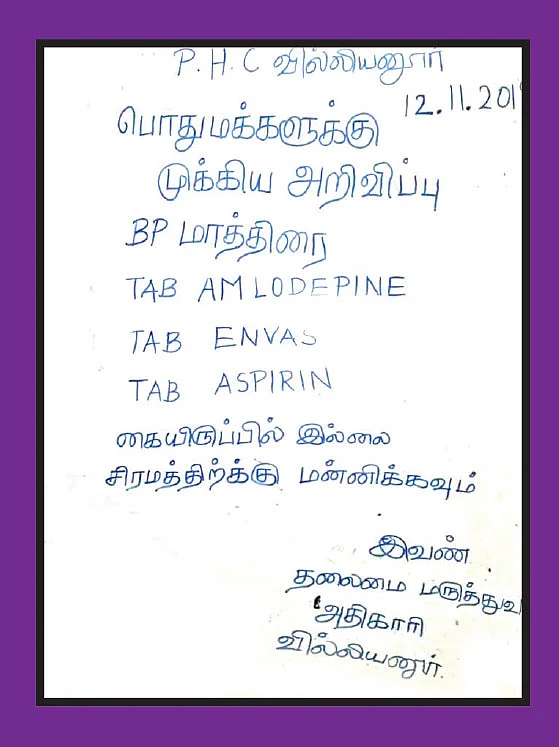 P.H.C வில்லியனூர்
12.11.201
பொதுமக்களுக்கு
முக்கிய அறிவிப்பு
BP மாத்திரை
TAB AMLODEPINE
TAB ENVAS
TAB ASPIRIN
கையிருப்பில் இல்லை
சிரமத்திற்க்கு மன்னிக்கவும்
இவண்
தலைமை மருத்துவ
அதிகாரி
வில்லியனூர்.